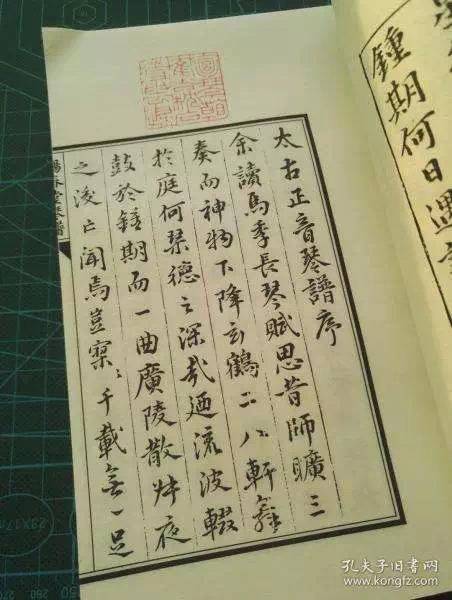 鍾期何日遇
太古正音琴譜序
余讀馬季長琴賦思昔師曠三
奏而神物下降玄鶴二八軒舞
於庭何琴德之深哉迺流波輟
鼓於鍾期而一曲廣陵散牀夜
之後亡聞焉豈寥〻千載無一足
孔夫子旧书网
www.kongfz.com